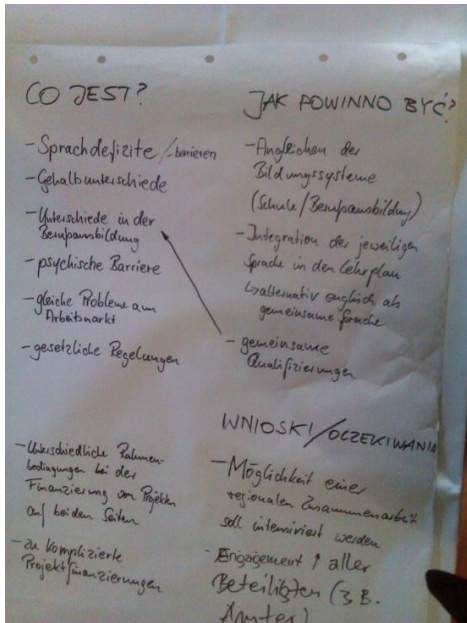 CO JEST?
- Sprachdefizite /-barieren
- Gehaltsunterschiede
- Unterschiede in der
Berufsausbildung
- psychische Barriere
- gleiche Probleme am
Arbeitsmarkt
- gesetzliche Regelungen
- Unterschiedliche Rahmen-
bedingungen bei der
Finanzierung von Projekten
auf beiden Seiten
- zu komplizierte
Projektfinanzierungen
JAK POWINNO BYĆ?
- Angleichen der
Bildungssysteme
(Schule/Berufsausbildung)
- Integration der jeweiligen
Sprache in den Lehrplan
↳ alternativ englisch als
gemeinsame Sprache
- gemeinsame
Qualifizierungen
WNIOSKI/OCZEKIWANIA
- Möglichkeit einer
regionalen Zusammenarbeit
soll intensiviert werden
- Engagement ↑ aller
Beteiligten (z.B.
Ämter)